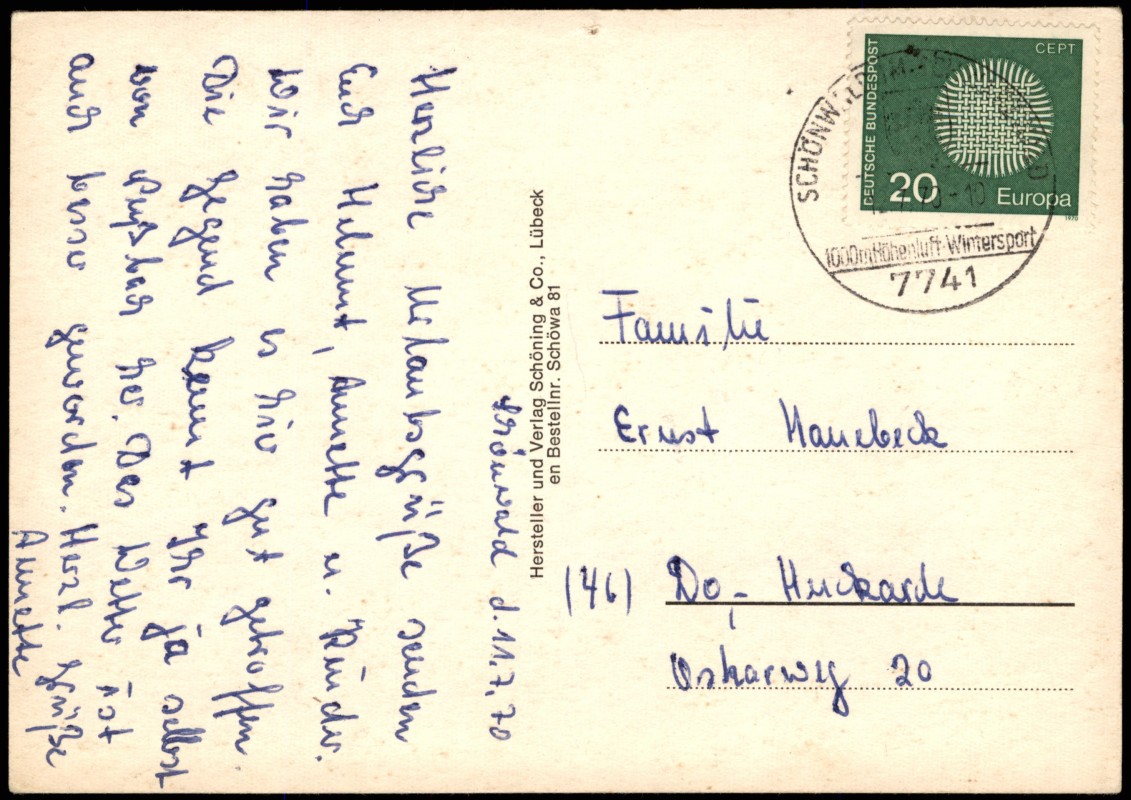 Schönwald d. 11.7.70
Herzliche Urlaubsgrüße senden
Euch Helmut, Annette u. Kinder.
Wir haben es hier gut getroffen.
Die Gegend kennt Ihr ja selbst
von her. Das Wetter ist
auch besser geworden. Herzl. Grüße
Annette
Hersteller und Verlag Schöning & Co., Lübeck
en Bestellnr. Schöwa 81
DEUTSCHE BUNDESPOST
CEPT
20
Europa
1970
1000m Höhenluft-Wintersport
7741
Familie
Ernst Hanebeck
(46) Do,- Huckarde
Oskarweg 20